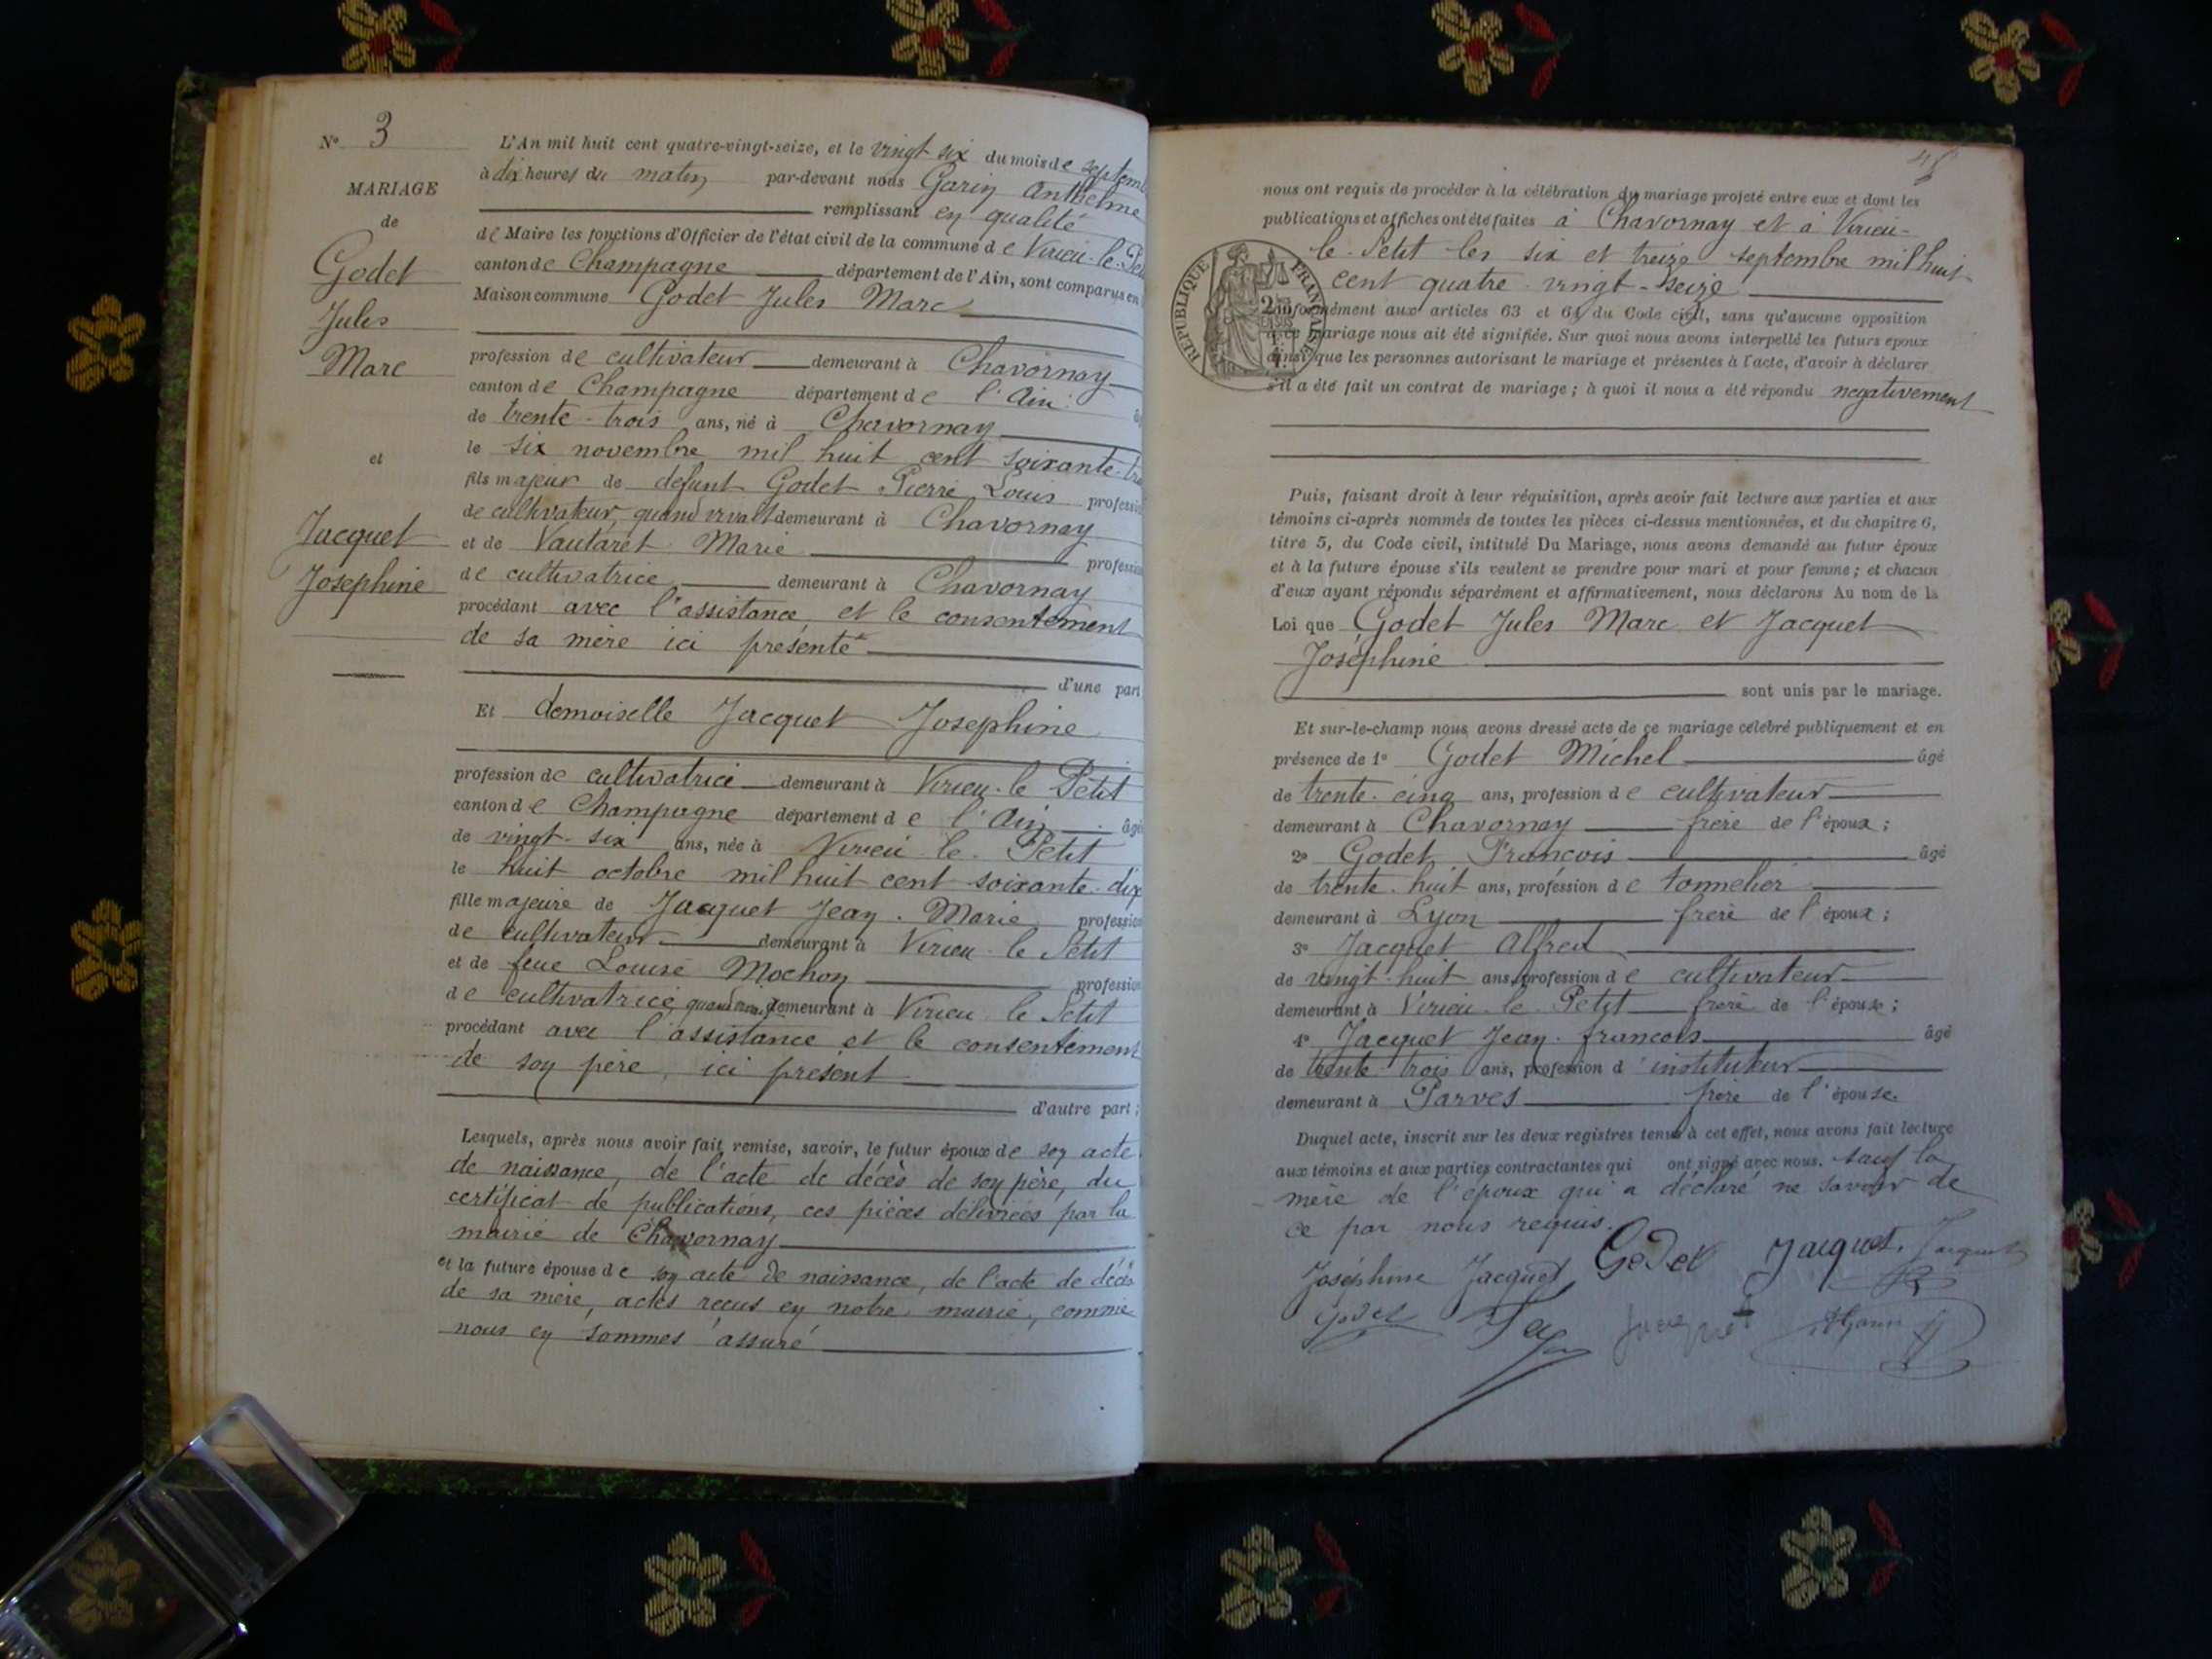 Nº 3
MARIAGE
de
Godet
Jules
Marc
et
Jacquet
Josephine
L'An mil huit cent quatre-vingt-seize, et le vingt six du mois de septem
à dix heures du matin par-devant nous Garin Anthelme
remplissant en qualité
de Maire les fonctions d'Officier de l'état civil de la commune de Virieu-le-Pe
canton de Champagne département de l'Ain, sont comparus en
Maison commune Godet Jules Marc
profession de cultivateur demeurant à Chavornay
canton de Champagne département de l'Ain
de trente-trois ans, né à Chavornay
le six novembre mil huit cent soixante-tr
fils majeur de défunt Godet Pierre Louis profession
de cultivateur quand vivait demeurant à Chavornay
et de Vautaret Marie profession
de cultivatrice demeurant à Chavornay
procédant avec l'assistance et le consentement
de sa mère ici présente
d'une part
Et demoiselle Jacquet Josephine
profession de cultivatrice demeurant à Virieu-le Petit
canton de Champagne département de l'Ain âgé
de vingt-six ans, née à Virieu-le-Petit
le huit octobre mil huit cent soixante-dix
fille majeure de Jacquet Jean-Marie profession
de cultivateur demeurant à Virieu-le Petit
et de feue Louise Mochon profession
de cultivatrice, demeurant à Virieu le Petit
procédant avec l'assistance et le consentement
de son père, ici présent
d'autre part;
Lesquels, après nous avoir fait remise, savoir, le futur époux de son acte
de naissance, de l'acte de décès de son père, du
certificat de publications, ces pièces délivrées par la
mairie de Chavornay
et la future épouse de son acte de naissance, de l'acte de décès
de sa mère, actes reçus en notre mairie, comme
nous en sommes assuré
nous ont requis de procéder à la célébration du mariage projeté entre eux et dont les
publications et affiches ont été faites à Chavornay et à Virieu-
le-Petit les six et treize septembre mil huit-
cent quatre-vingt-seize
RÉPUBLIQUE FRANÇAISE
formément aux articles 63 et 64 du Code civil, sans qu'aucune opposition
à ce mariage nous ait été signifiée. Sur quoi nous avons interpellé les futurs époux
ainsi que les personnes autorisant le mariage et présentes à l'acte, d'avoir à déclarer
s'il a été fait un contrat de mariage; à quoi il nous a été répondu negativement
Puis, faisant droit à leur réquisition, après avoir fait lecture aux parties et aux
témoins ci-après nommés de toutes les pièces ci-dessus mentionnées, et du chapitre 6,
titre 5, du Code civil, intitulé Du Mariage, nous avons demandé au futur époux
et à la future épouse s'ils veulent se prendre pour mari et pour femme; et chacun
d'eux ayant répondu séparément et affirmativement, nous déclarons Au nom de la
Loi que Godet Jules Marc et Jacquet
Joséphine
sont unis par le mariage.
Et sur-le-champ nous avons dressé acte de ce mariage célébré publiquement et en
présence de 1º Godet Michel âgé
de trente-cinq ans, profession de cultivateur
demeurant à Chavornay frère de l'époux;
2º Godet François âgé
de trente-huit ans, profession de tonnelier
demeurant à Lyon frère de l'époux;
3º Jacquet Alfred
de vingt-huit ans, profession de cultivateur
demeurant à Virieu-le-Petit frère de l'épouse;
4º Jacquet Jean-françois âgé
de trente-trois ans, profession d'instituteur
demeurant à Parves frère de l'épouse.
Duquel acte, inscrit sur les deux registres tenus à cet effet, nous avons fait lecture
aux témoins et aux parties contractantes qui ont signé avec nous. sauf la
mère de l'époux qui a déclaré ne savoir de
ce par nous requis.
Joséphine Jacquet Godet Jacquet. Jacquet
Godet Jacquet Garin